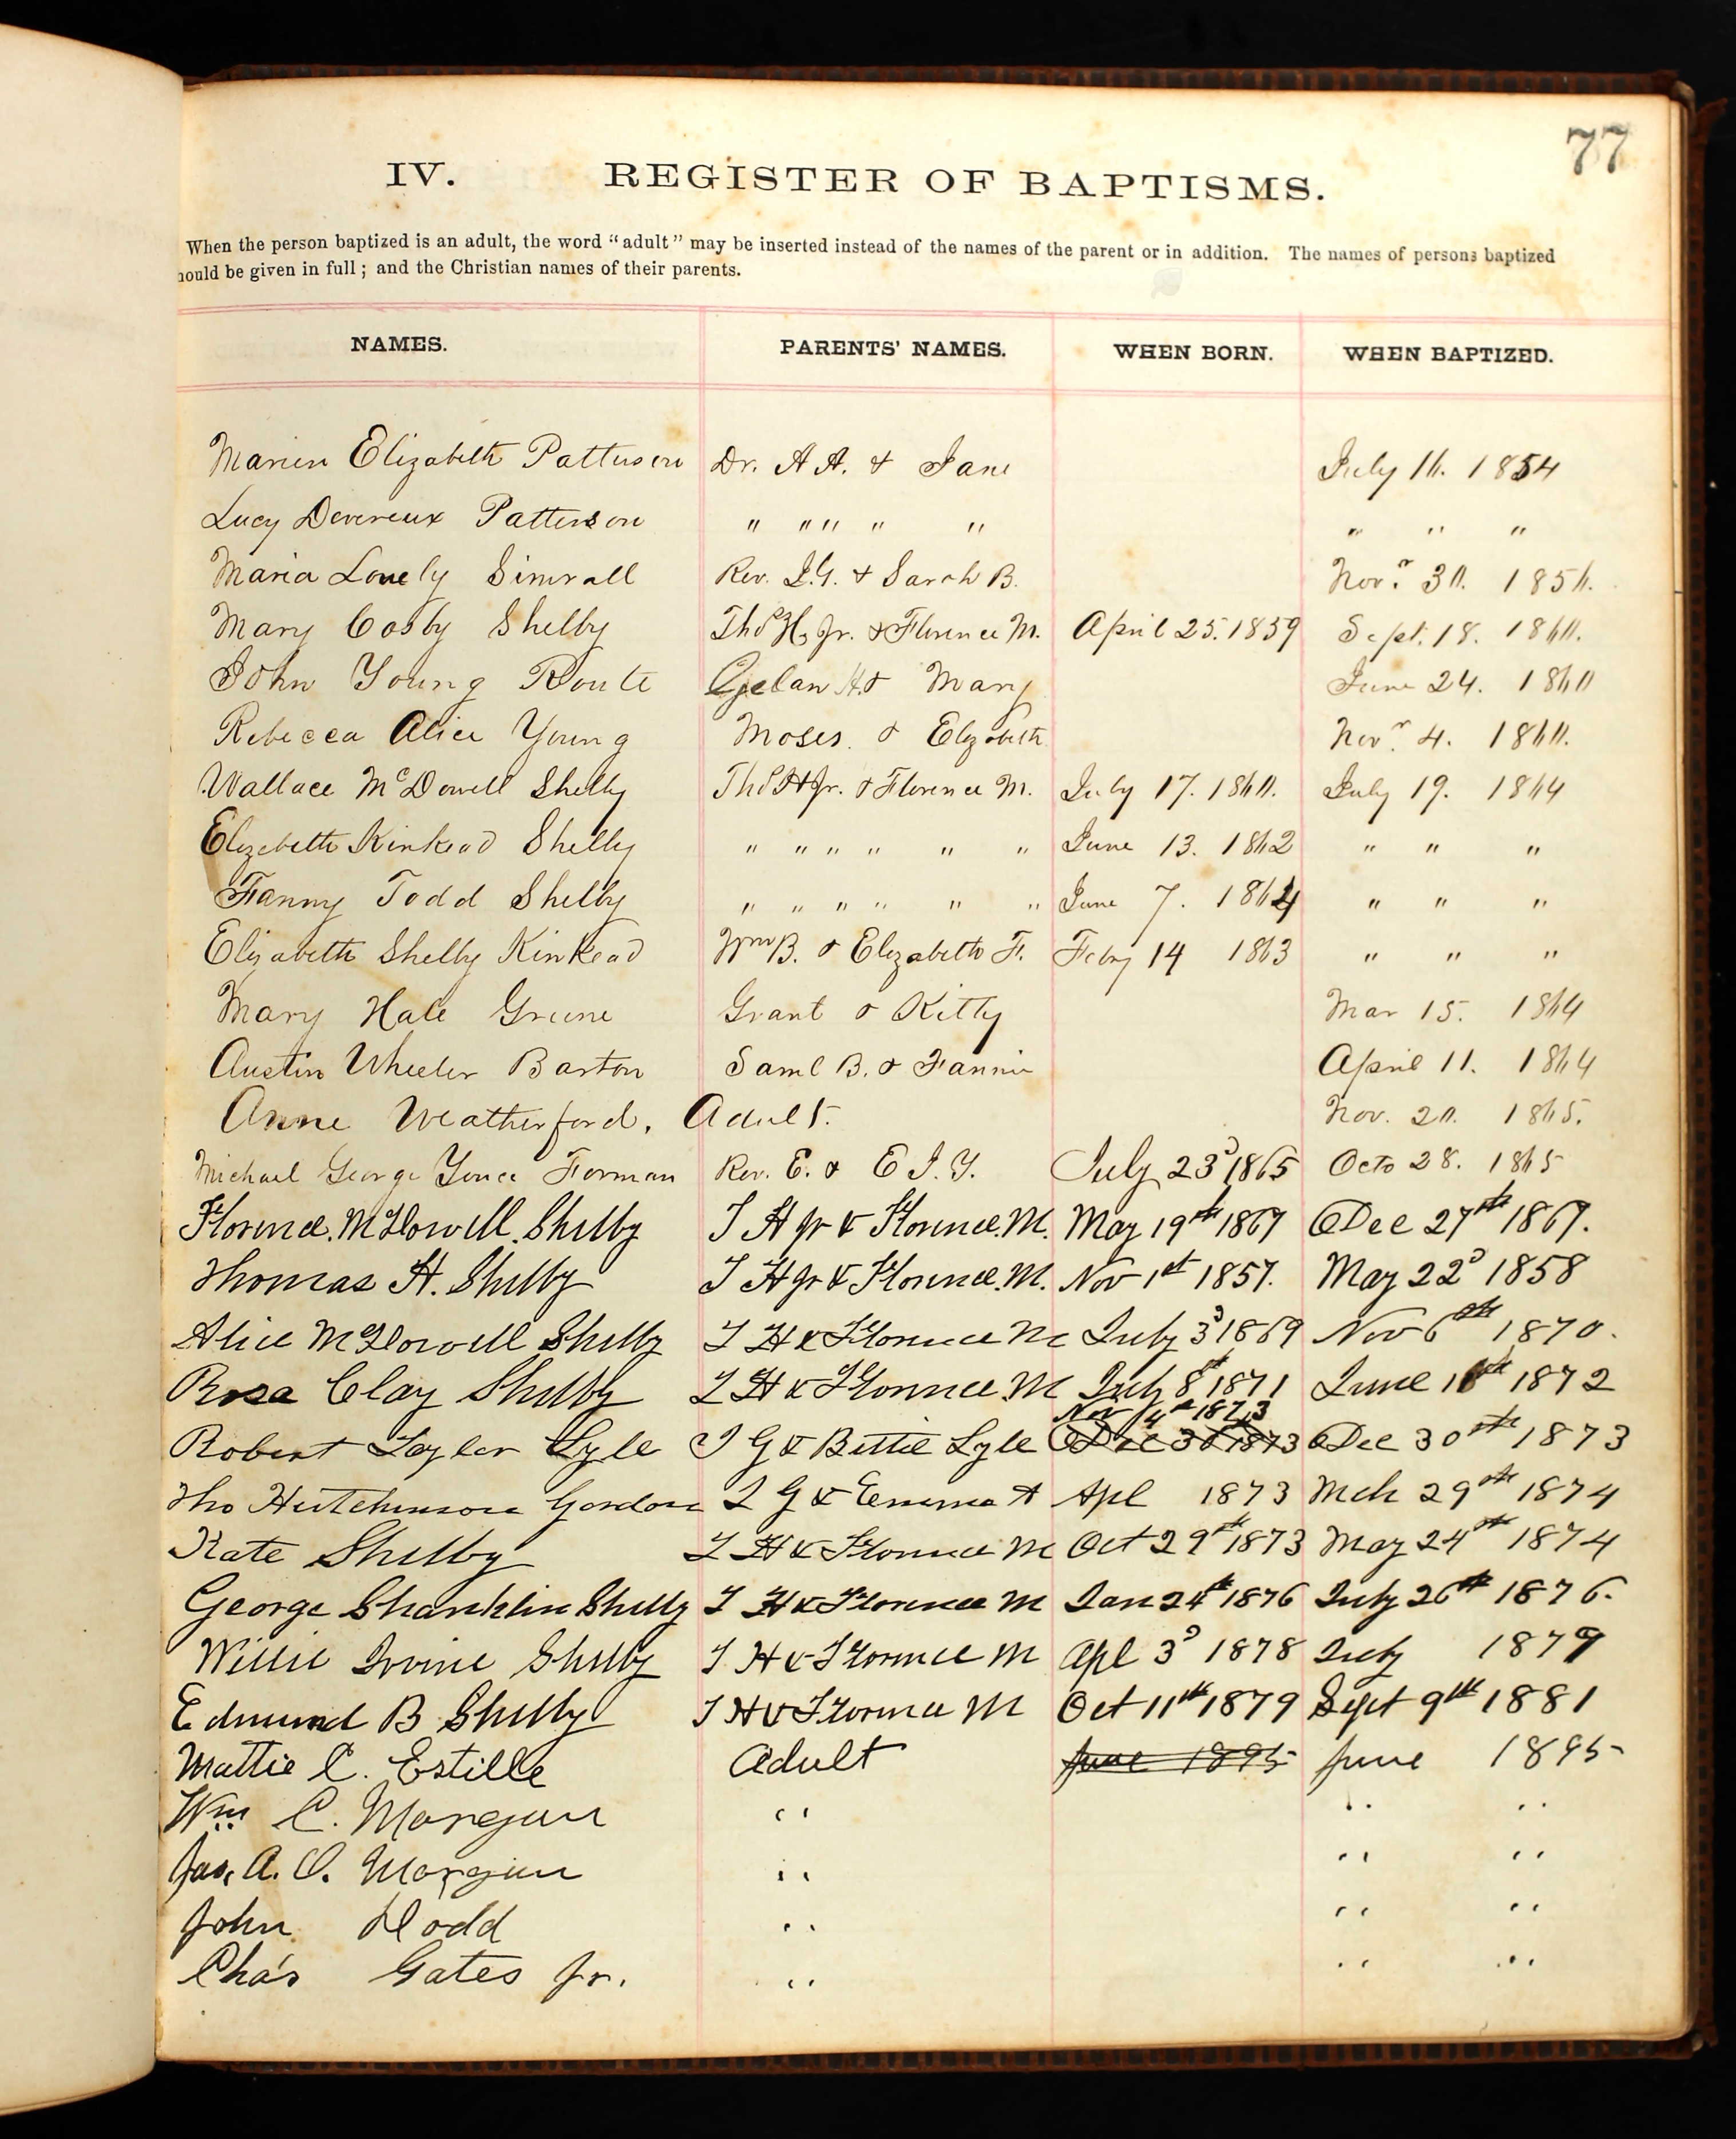 77
IV. REGISTER OF BAPTISMS.
When the person baptized is an adult, the word "adult" may be inserted instead of the names of the parent or in addition. The names of persons baptized
hould be given in full; and the Christian names of their parents.
NAMES. PARENTS' NAMES. WHEN BORN. WHEN BAPTIZED.
Elizabeth Patterson Dr. A A. & Jane July 16. 1854
Lucy Devereux Patterson " " " " " " " "
Maria Lovely Simrall Rev. J.G. & Sarah B. Novr. 30. 1850.
Mary Cosby Shelby Thos H, Jr. & Florence M. April 25. 1859 Sept. 18. 1860.
John Young Route H & Mary June 24. 1860
Rebecca Alice Young Moses. & Elizabeth Novr. 4. 1860.
Wallace McDowell Shelby Thos H Jr. & Florence M. July 17. 1860. July 19. 1864
Elizabeth Kinkead Shelby " " " " " " June 13. 1862 " " "
Fanny Todd Shelby " " " " " " June 7. 1864 " " "
Elizabeth Shelby Kinkead Wm B. & Elizabeth F. Feby 14 1863 " " "
Mary Hale Greene Grant & Kitty Mar 15. 1864
Austin Wheeler Barton Saml B. & Fannie April 11. 1864
Anne Weatherford. Adult. Nov. 20. 1865.
Michael George Youce Forman Rev. E. & E J. Y. July 23d 1865 Octo 28. 1865
Florence. McDowell. Shelby T H Jr & Florence. M. May 19th 1867 Dec 27th 1867.
Thomas H. Shelby T H Jr & Florence. M. Nov 1st 1857. May 22d 1858
Alice McDowell Shelby T H & Florence M July 3d 1869 Nov 6th 1870.
Rosa Clay Shelby T H & Florence M July 8th 1871 June 16th 1872
Nov 4th 1873
Robert Taylor Lyle J G & Bettie Lyle Dec 30 1873 Dec 30th 1873
Tho Hutchinson Gordon J G & Emma A Apl 1873 Mch 29th 1874
Kate Shelby T H & Florence M Oct 29th 1873 May 24th 1874
George Shanklin Shelby T H & Florence M Jan 24th 1876 July 26th 1876.
Willie Irvine Shelby T H & Florence M Apl 3d 1878 July 1879
Edmund B Shelby T H & Florence M Oct 11th 1879 Sept 9th 1881
Mattie C. Estille Adult June 1895 June 1895
Wm C. Morgan " " "
Jas. A. O. Morgan " " "
John Dodd " " "
Cha's Gates Jr. " " "